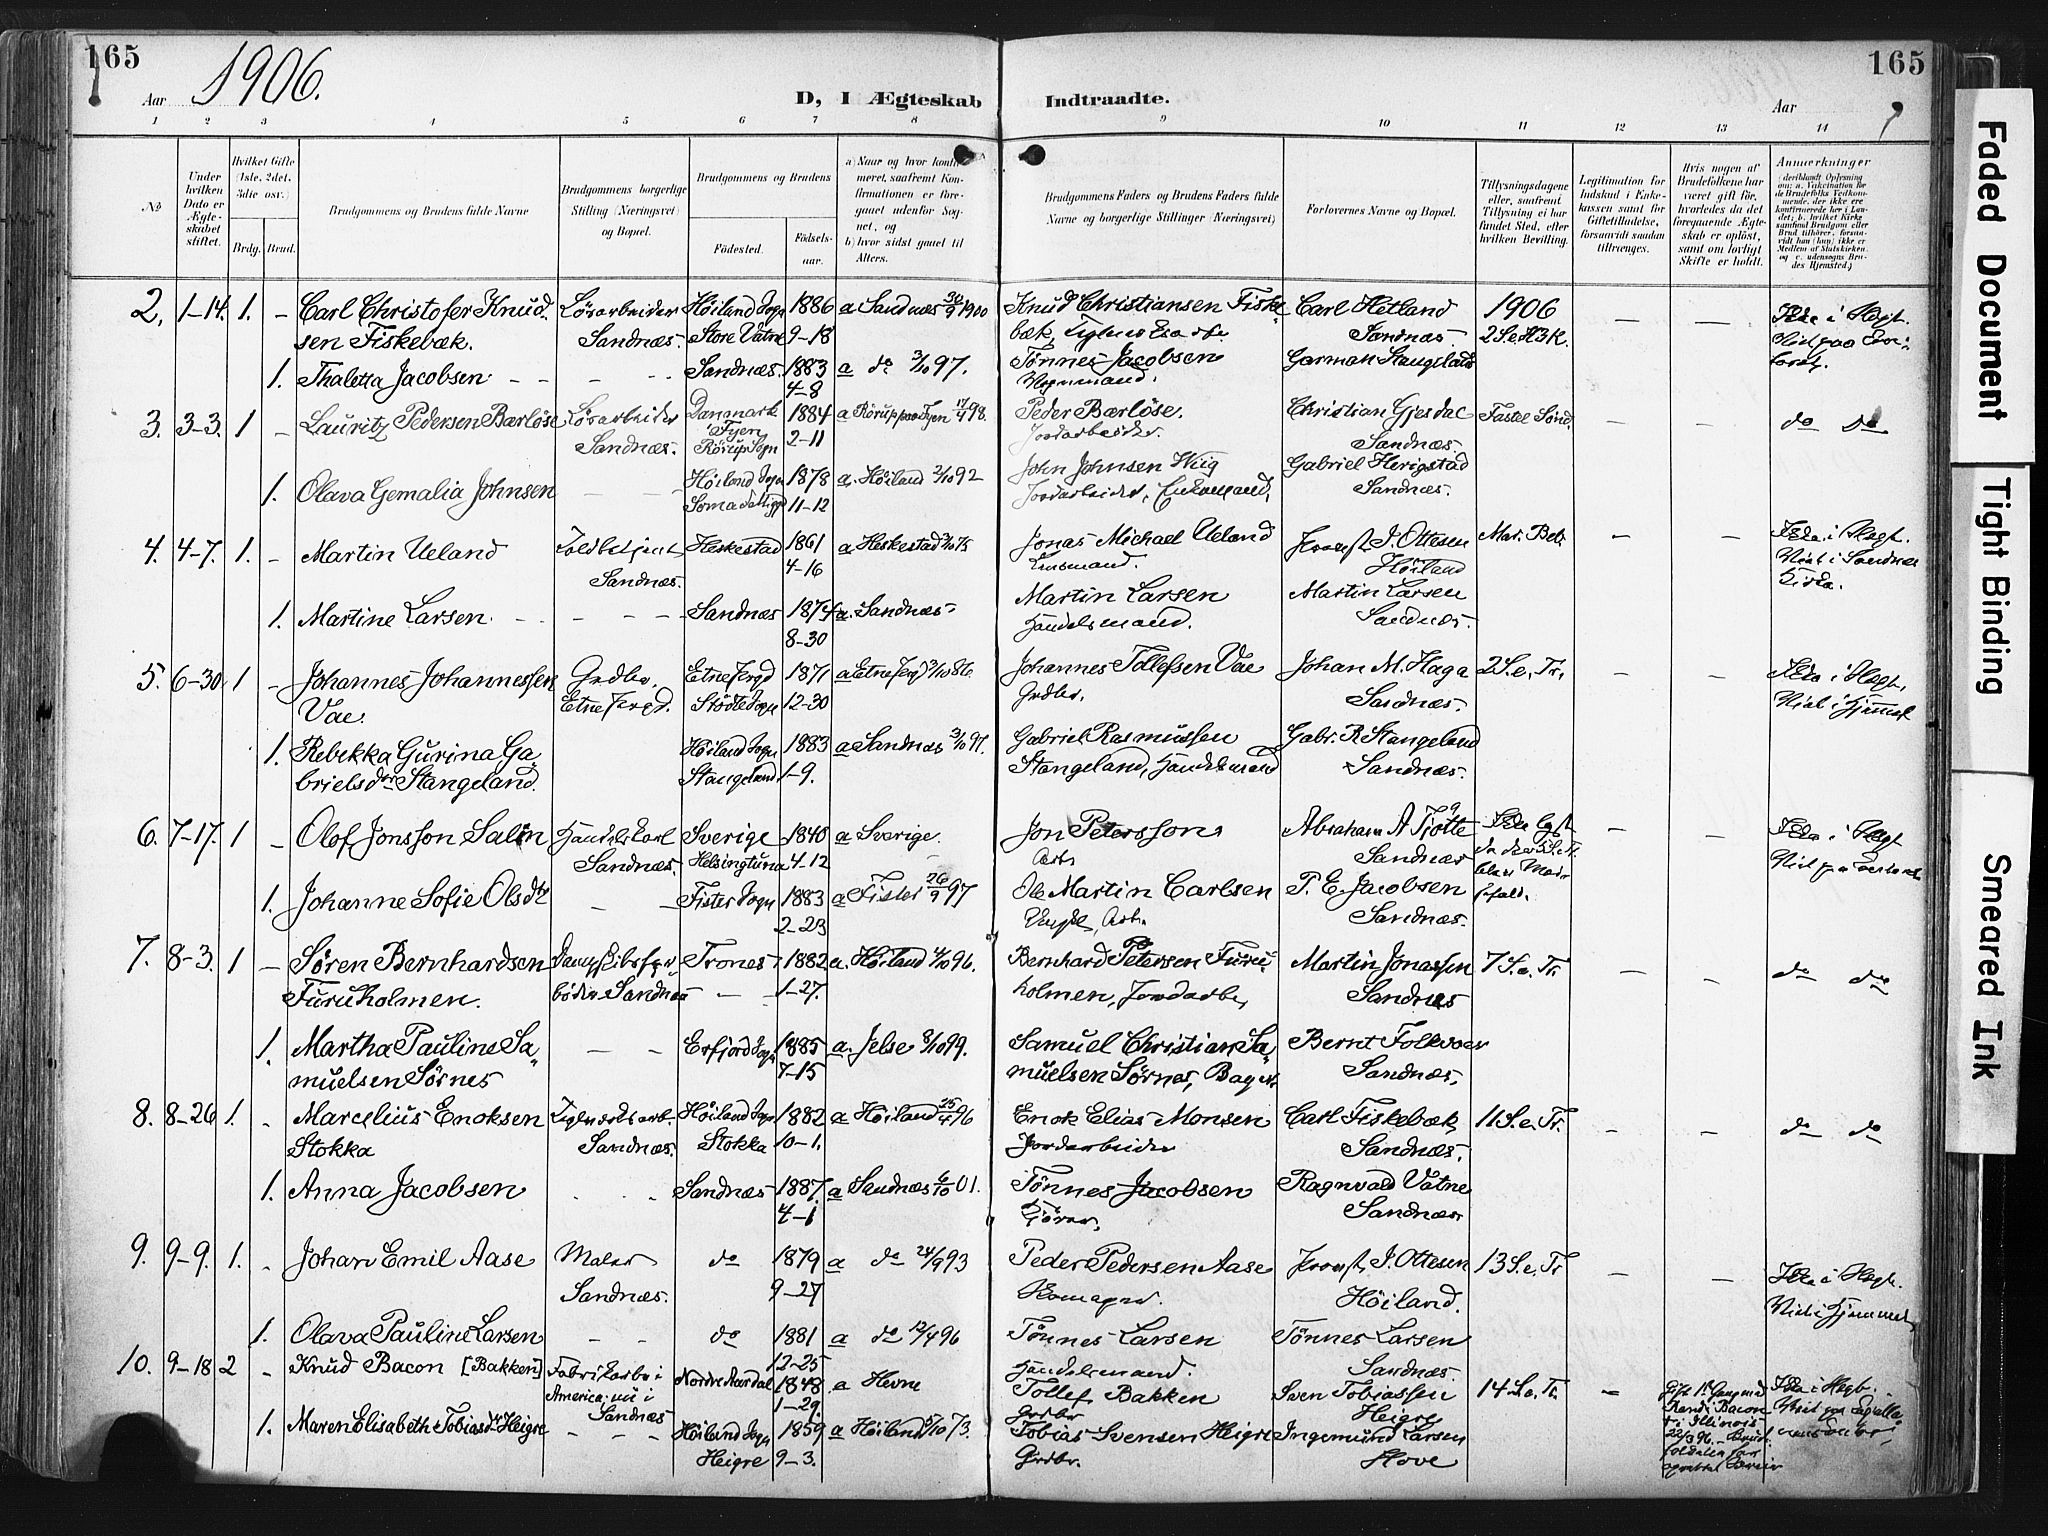 165
1906.
Aar
D, I Ægteskab Indtraadte.
Aar
165
1 2 3 4 5 6 7 8 9 10 11 12 13 14
No
Under hvilken Dato er Ægteskabet stiftet.
Hvilket Gifte (1ste, 2det, 3die osv.)
Brdg. Brud.
Brudgommens og Brudens fulde Navne
Brudgommens borgerlige Stilling (Næringsvei) og Bopæl.
Brudgommens og Brudens
Fødested.
Fødselsaar.
a) Naar og hvor konfirmeret, saafremt Konfirmationen er foregaaet udenfor Sognet, og
b) hvor sidst gaaet til Alters.
Brudgommens Faders og Brudens Faders fulde Navne og borgerlige Stillinger (Næringsvei)
Forlovernes Navne og Bopæl.
Tillysningsdagene eller, saafremt Tillysning ei har fundet Sted, efter hvilken Bevilling.
Legitimation for Indskud i Enkekassen samt for Giftetilladelse, forsaavidt saadan tiltrænges.
Hvis nogen af Brudefolkene har været gift før, hvorledes da det foregaaende Ægteskab er opløst, samt om lovligt Skifte er holdt.
Anmærkninger
2. 1-14. 1. - Carl Christofer Knudsen Fiskebæk. Sandnæs. Høiland Sogn Store Vatne 1886 9-18 a Sandnæs 30/9 1900 Knud Christiansen Fiskebæk, Carl Hetland Sandnæs. 1906 2 S. e. H3K. - -
1. Thaletta Jacobsen - - - - Sandnæs. 1883 4-8 a do 3/10 97. Tønnes Jacobsen Vognmand. Garman Stangeland
3. 3-3. 1 - Lauritz Pedersen Bærløse Sandnæs. Danmark Fyen Rørup Sogn 1884 2-11 a Rørup paa Fyen 17/4 98. Peder Bærløse. Jordarbeider. Christian Gjesdal Sandnæs. Fastel. Sønd. - - do do
1. Olava Gemalia Johnsen - - Høiland Sogn 1878 11-12 a. Høiland 2/10 92 John Johnsen Wiig Jordarbeider, Enkemand. Gabriel Herigstad Sandnæs.
4. 4-7. 1. - Martin Ueland Toldbetjent Sandnæs. Heskestad 1861 4-16 a Heskestad Jonas Michael Ueland Provst J. Ottesen Høiland Mar. Beb. - -
1. Martine Larsen. - - - - Sandnæs 1874 8-30 a. Sandnæs Martin Larsen Handelsmand. Martin Larsen Sandnæs.
5. 6-30 1 - Johannes Johannessen Vae. Grdbr. Etne Prgd. Etne Prgd Stødle Sogn 1871 12-30 a Etne Prgd 3/10 86. Johannes Tollefsen Vae Grdbr. Johan M. Haga Sandnæs. 2 S. e. Tr. - -
1. Rebekka Gurina Gabrielsdtr Stangeland. Høiland Sogn Stangeland 1883 1-9. a Sandnæs 3/10 97. Gabriel Rasmussen Stangeland, Handelsmand Gabr. R Stangeland Sandnæs.
6. 7-17. 1 - Olof Jonsson Salin Handelskarl Sandnæs. Sverige Helsingtuna 1840 4-12 a Sverige. Jon Petersson Arb. Abraham A Tjøtte Sandnæs - -
1. Johanne Sofie Olsdtr - - Fister Sogn 1883 2-23 a Fister 26/9 97 Ole Martin Carlsen P. E. Jacobsen Sandnæs.
7. 8-3. 1 - Søren Bernhardsen Furuholmen. Sandnæs Trones 1882 1-27. a. Høiland 4/10 96. Bernhard Petersen Furuholmen, Jordarb. Martin Jonassen Sandnæs 7 S. e. Tr. - - do do
1. Martha Pauline Samuelsen Sørnes - - Erfjord Sogn 1885 7-15 a. Jelse 8/10 99. Samuel Christian Samuelsen Sørnes, Bager. Bernt Folkvor Sandnæs.
8. 8-26 1. - Marcelius Enoksen Stokka Teglverksarb. Sandnæs. Høiland Sogn Stokka 1882 10-1. a Høiland 25/4 96 Enok Elias Monsen Jordarbeider Carl Fiskebæk Sandnæs. 11 S. e. Tr. - - do do
1. Anna Jacobsen - - Sandnæs 1887. 4-1 a Sandnæs 6/10 01. Tønnes Jacobsen Kjører. Ragnvald Vatne Sandnæs
9. 9-9. 1. - Johan Emil Aase Maler Sandnæs. do 1879 9-27 a do 24/9 93 Peder Pedersen Aase Provst J. Ottesen Høiland. 13 S. e. Tr - -
1. Olava Pauline Larsen - - do 1881 12-25 a do 12/4 96 Tønnes Larsen Handelsmand. Tønnes Larsen Sandnæs.
10. 9-18 2 - Knud Bacon [Bakken] Fabrikarb. i America. nu i Sandnæs Nordre Aurdal 1848 1-29. a Hevne Tollef Bakken Grdbr Sven Tobiassen Heigre 14 S. e. Tr. -
1. Maren Elisabeth Tobiasdtr Heigre - - - Høiland Sogn Heigre 1859 9-3. a Høiland 5/10 73. Tobias Svensen Heigre Grdbr. Ingemund Larsen Hove
Faded Document
Tight Binding
Smeared Ink